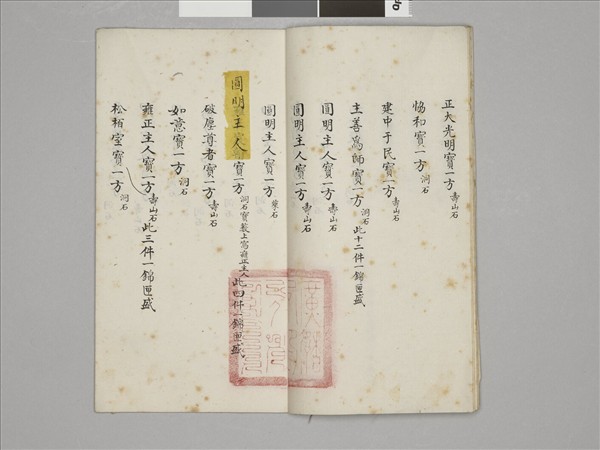 正大光明寶一方 壽山石
協和寶一方 洞石
建中于民寶一方 壽山石
主善為師寶一方 洞石 此十二件一錦匣盛
圓明主人寶一方 壽山石
圓明主人寶一方 壽山石
圓明主人寶一方
圓明主人寶一方 洞石寶藪上寫雍正主人 此四件一錦匣盛
破塵尊者寶一方 壽山石
如意寶一方 洞石
雍正主人寶一方 壽山石 此三件一錦匣盛
松栢室寶一方 洞石